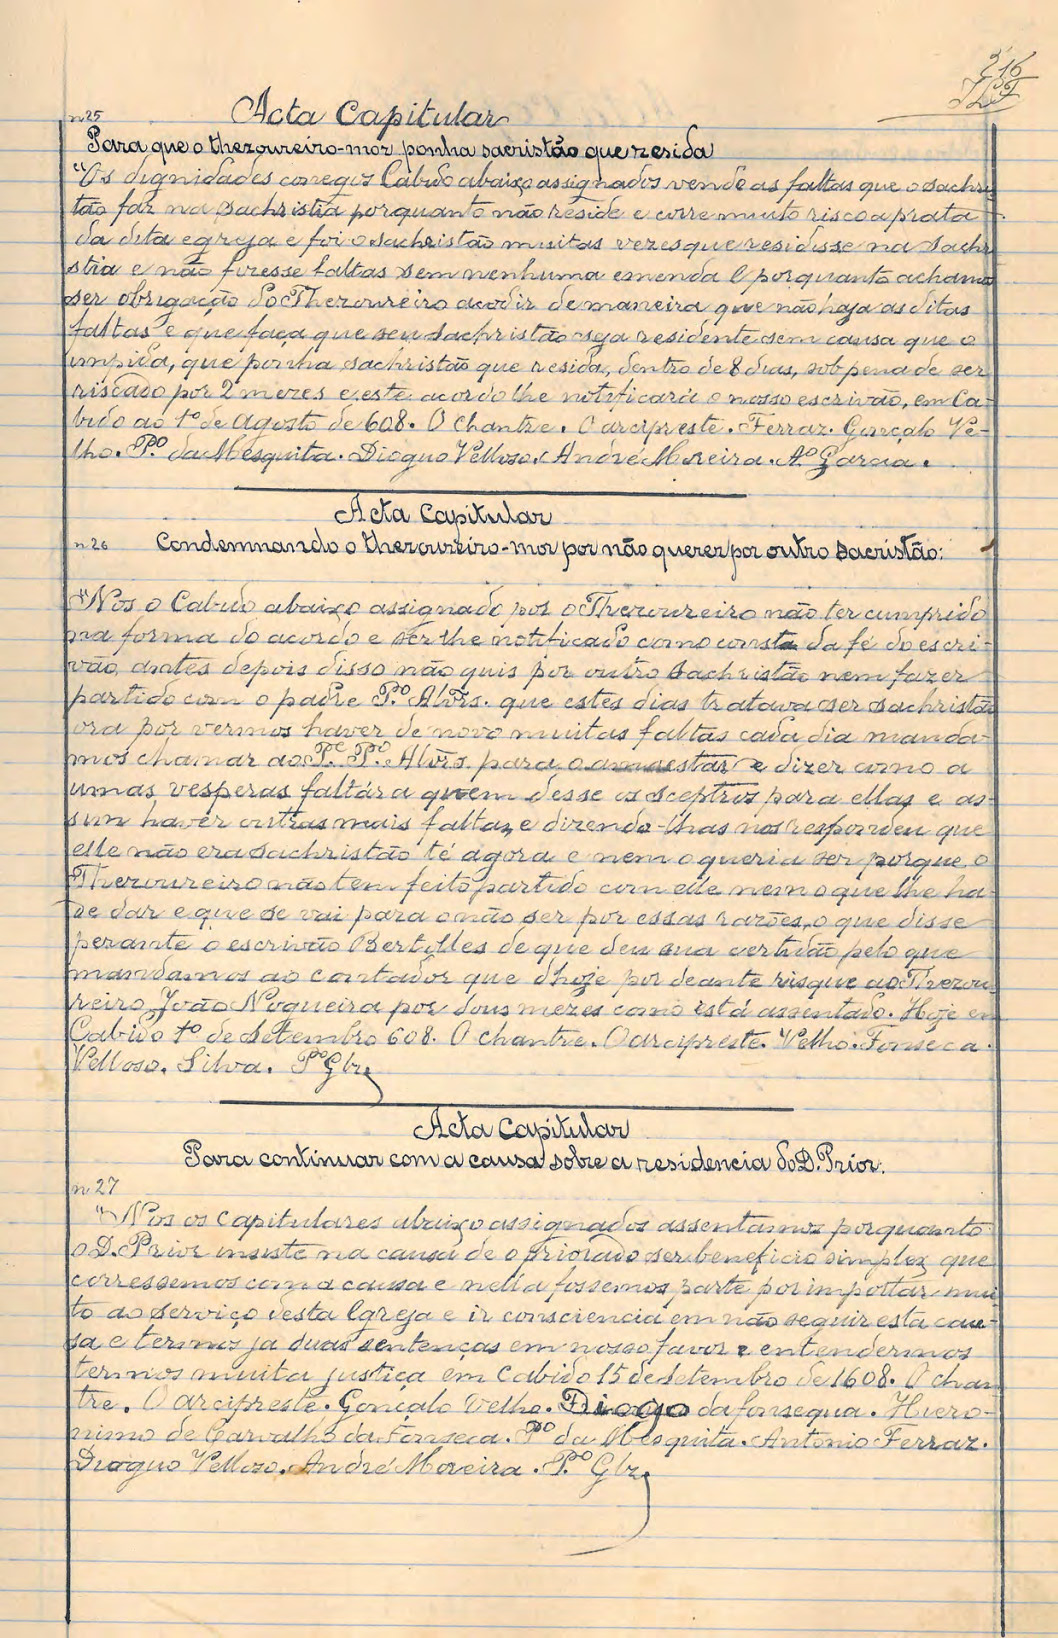 216
n 25 Acta Capitular
Para que o thezoureiro-mor ponha sacristão que resida
"Os dignidades conegos Cabido abaixo assignados vendo as faltas que o sachris
tão faz na sachristia porquanto não reside e corre muito risco a prata
da dita egreja e foi o sachristão muitas vezes que residisse na sachri
stia e não fizesse faltas sem nenhuma emenda E porquanto achamos
ser obrigação do Thezoureiro acodir de maneira que não haja as ditas
faltas e que faça que seu sachristão seja residente sem causa que o
impida, que ponha sachristão que resida, dentro de 8 dias, sob pena de ser
riscado por 2 mezes e este acordo lhe notificará o nosso escrivão, em Ca-
bido ao 1º de Agosto de 608. O Chantre. O arcipreste. Ferraz. Gonçalo Ve-
lho. Pº. da Mesquita. Dioguo Velloso. André Moreira. Aº Garcia.
Acta Capitular
n 26 Condemnando o thezoureiro-mor por não querer por outro sacristão:
"Nos o Cabido abaixo assignado por o Thezoureiro não ter cumprido
na forma do acordo e ser lhe notificado como consta da fé do escri-
vão, antes depois disso não quis por outro sachristão nem fazer
partido com o padre Pº. Alvrs. que estes dias tratava ser sachristão
ora por vermos haver de novo muitas faltas cada dia manda-
mos chamar ao Pe. Pº. Alvrs. para o amuestar e dizer como a
umas vesperas faltára quem desse os sceptros para ellas e as-
sim haver outras mais faltas, e dizendo-lhas nos respondeu que
elle não era sachristão té agora e nem o queria ser porque o
Thezoureiro não tem feito partido com elle nem o que lhe ha-
de dar e que se vai para o não ser por essas razões, o que disse
perante o escrivão Bertolles de que deu sua certidão pelo que
mandamos ao contador que dhoje por deante risque ao Thezou
reiro João Nogueira por dous mezes como está assentado. Hoje em
Cabido 1º de Setembro 608. O chantre. O arcipreste. Velho. Fonseca.
Velloso. Silva. Pº Glz.
Acta Capitular
Para continuar com a causa sobre a residencia do D. Prior.
n 27
"Nos os capitulares abaixo assignados assentamos porquanto
o D. Prior insiste na causa de o priorado ser beneficio simplez que
corressemos com a causa e nella fossemos parte por importar mui
to ao serviço desta Egreja e ir consciencia em não seguir esta cau-
sa e termos ja duas sentenças em nosso favor e entendermos
termos muita justiça em Cabido 15 de Setembro de 1608. O chan
tre. O arcipreste. Gonçalo Velho. Diogo da fonsequa. Hiero-
nimo de Carvalho da Fonseca. Pº da Mesquita. Antonio Ferraz.
Dioguo Velloso. André Moreira. Pº. Glz.